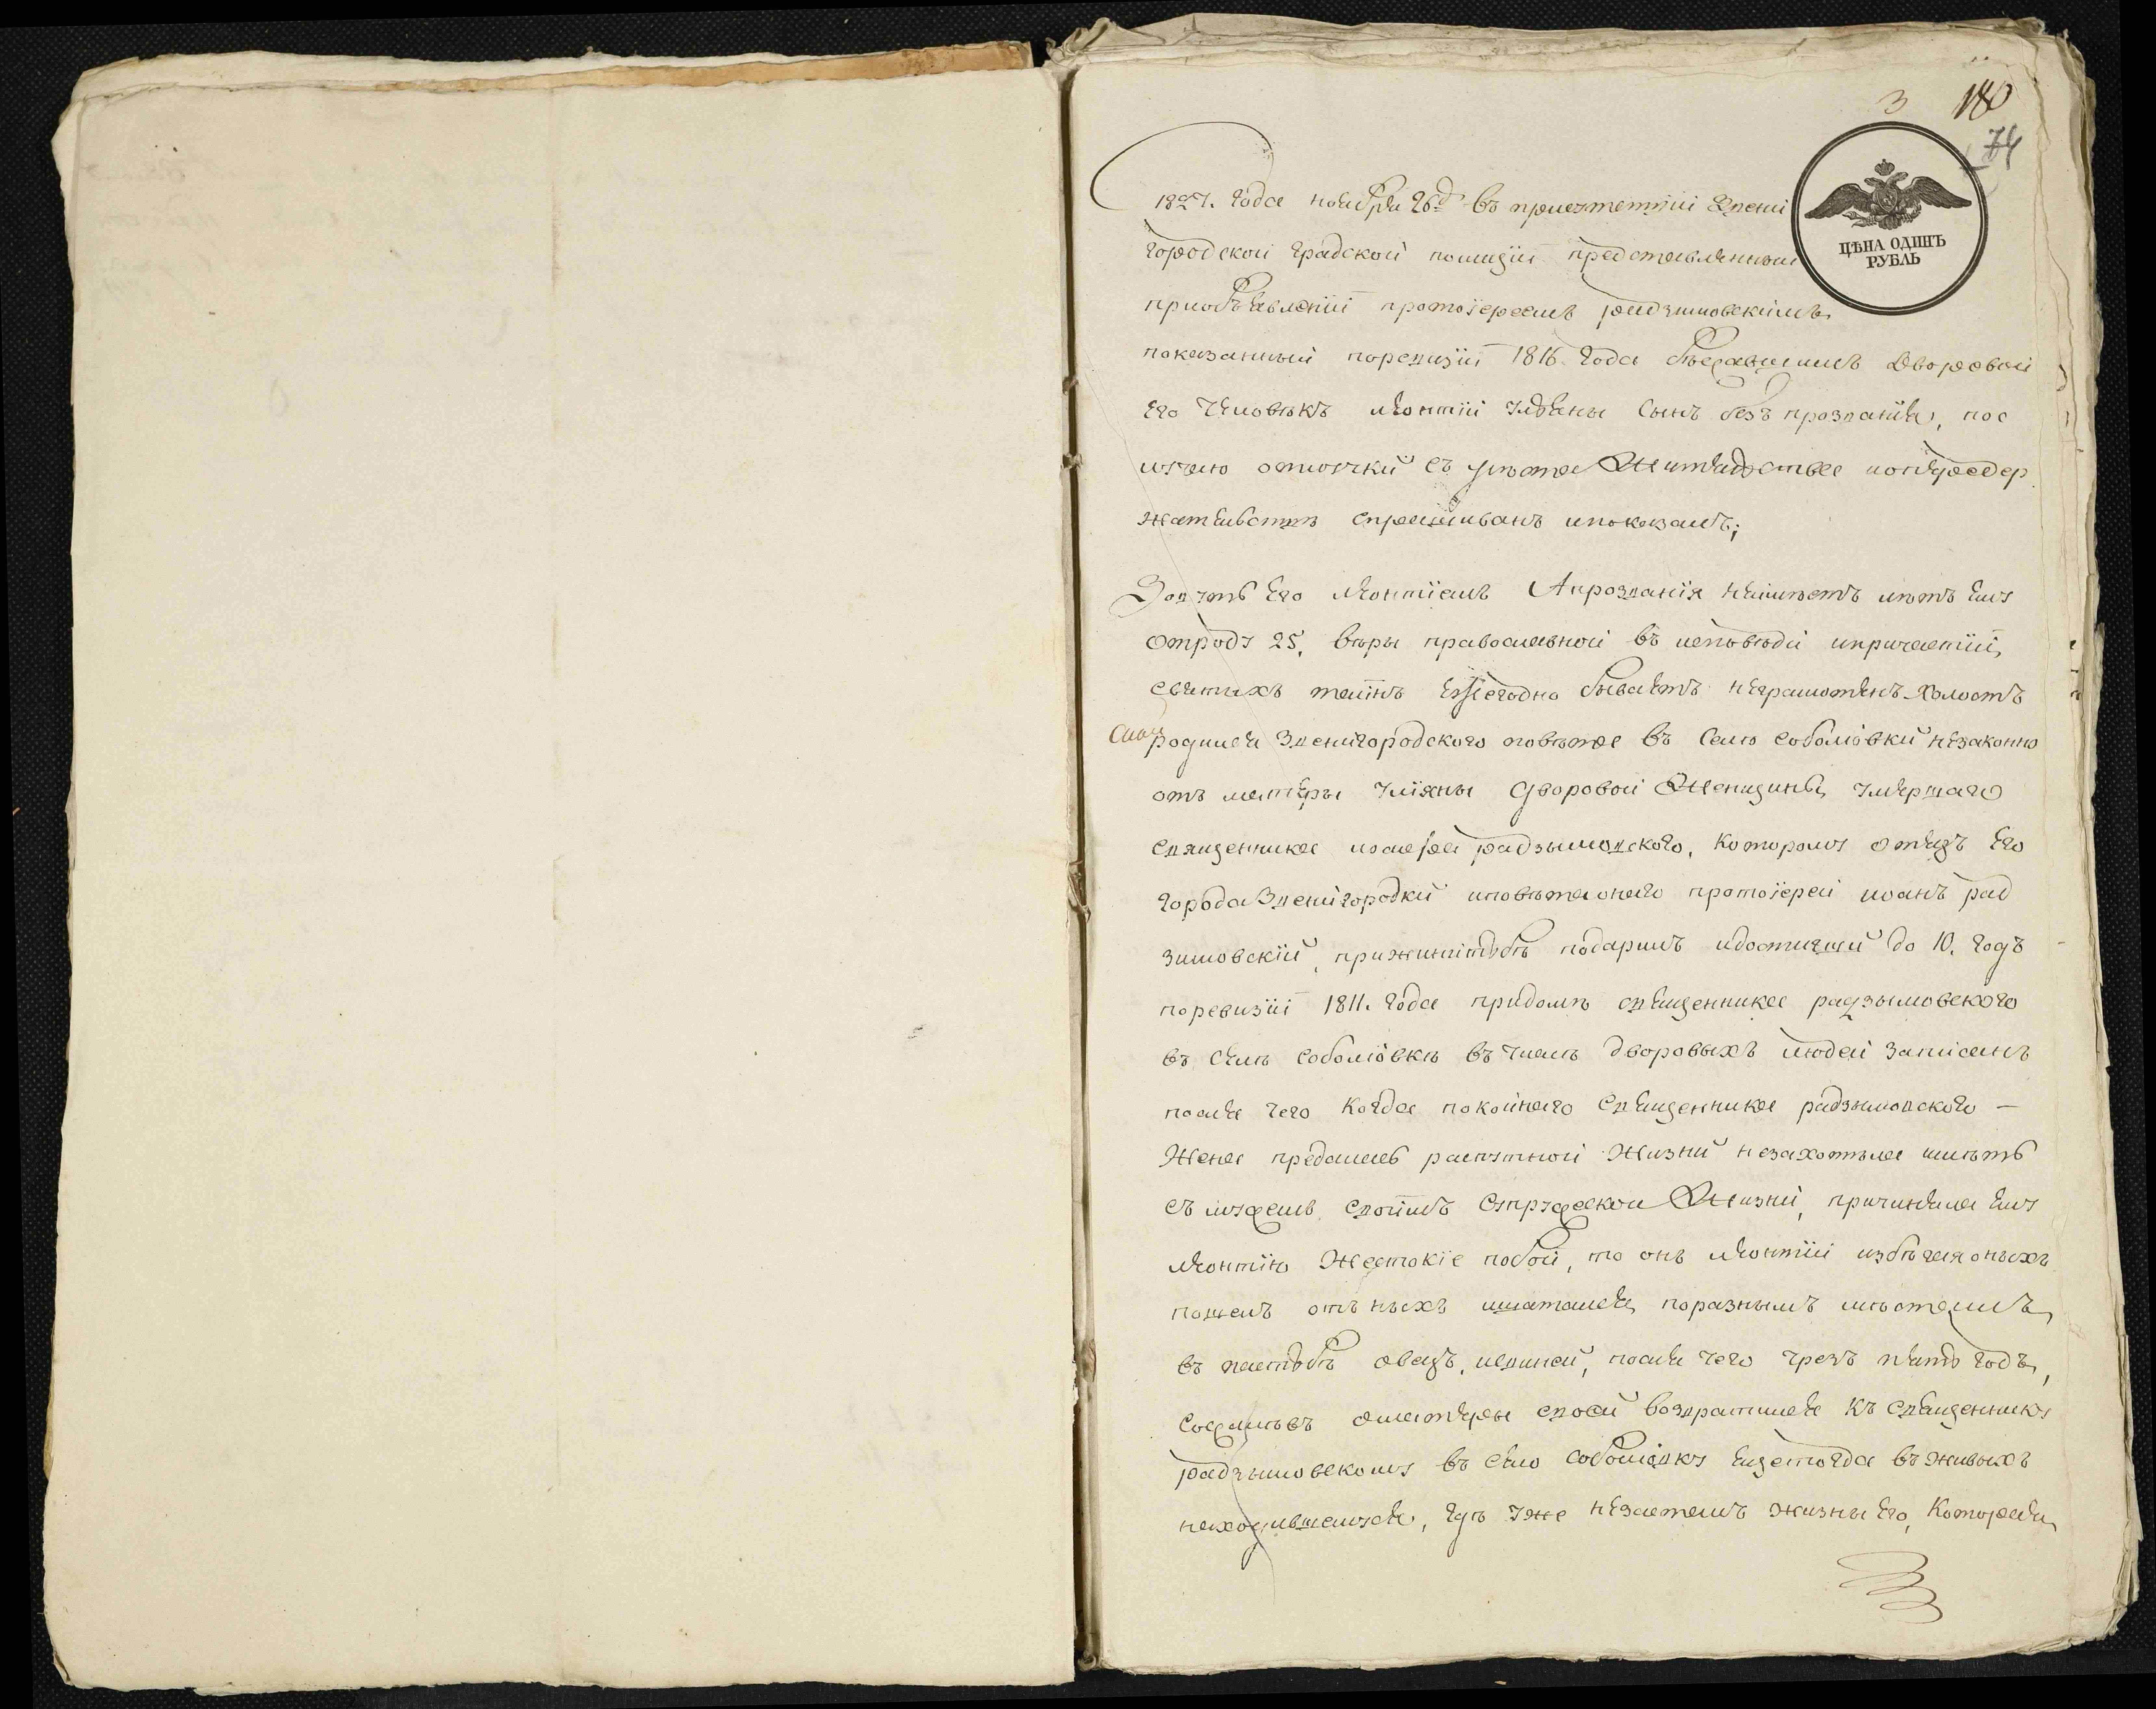 3 180
74
1827. года ноября 26д въ присутствіи Звени
ЦѢНА ОДИНЪ
РУБЛЬ
городской градской полиціи представленный
приобъявленіи протоіереемъ радзимовскимъ
показанный поревизіи 1816 года бѣжавшимъ дворовой
его человѣкъ леонтій ульяны сынъ безъ прозванія, пос
лучаю отлучки съ мѣста жительства
спрашиванъ ипоказалъ;
Зовутъ его леонтіемъ Апрозванія неимѣетъ лѣтъ ему
отроду 25, вѣры православной въ исповѣди ипричастіи
святыхъ таинъ ежегодно бываетъ неграмотенъ холостъ
родился Звенигородского повѣта въ Селѣ соболіовки незаконно
отъ матеры уліяны дворовой Женщины умершаго
священника радзымовского, которому отецъ его
города Звенигородки иповѣта онаго протоіерей иоанъ рад
зимовскій, приженитьбѣ подарилъ идостигши до 10. годъ
поревизіи 1811. года придомѣ священника радзымовского
въ селѣ соболіовкѣ въ числѣ дворовыхъ людей записанъ
после чего когда покойнаго священника радзымовского —
Жена предалась распутной жизни незахотѣла имѣть
съ мужемъ своимъ супружеской Жизни, причиняла ему
леонтію Жестокіе побои, то онъ леонтій избѣгая оныхъ
пошелъ отъ ныхъ шатался поразнымъ мѣстамъ
въ пастьбѣ овецъ, исвиней, после чего чрезъ пять годъ,
Сожалѣвъ оматеры своей возвратился къ священнику
радзымовскому въ село соболіовку ещетогда въ живыхъ
находившемуся, гдѣ уже незасталъ жены его, Которая